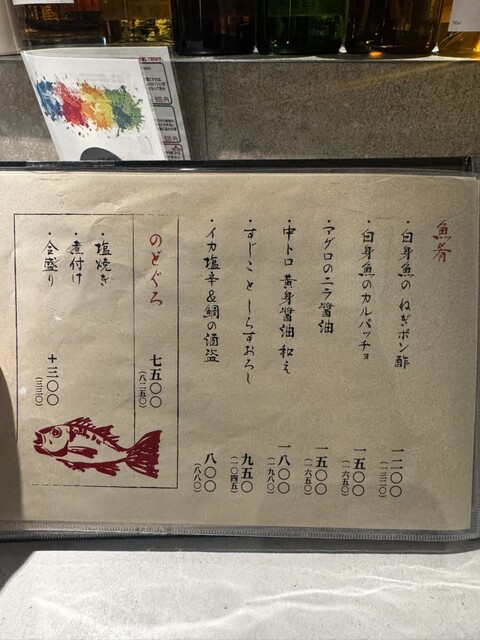 魚肴
・白身魚のねぎポン酢
一二〇〇
(一三二〇)
・白身魚のカルパッチョ
一五〇〇
(一六五〇)
・マグロのニラ醤油
一五〇〇
(一六五〇)
・中トロ黄身醤油和え
一八〇〇
(一九八〇)
・すじことしらすおろし
九五〇
(一〇四五)
・イカ塩辛&鯛の酒盗
八〇〇
(八八〇)
のどぐろ
七五〇〇
(八二五〇)
・塩焼き
・煮付け
・合盛り
+三〇〇
(三三〇)